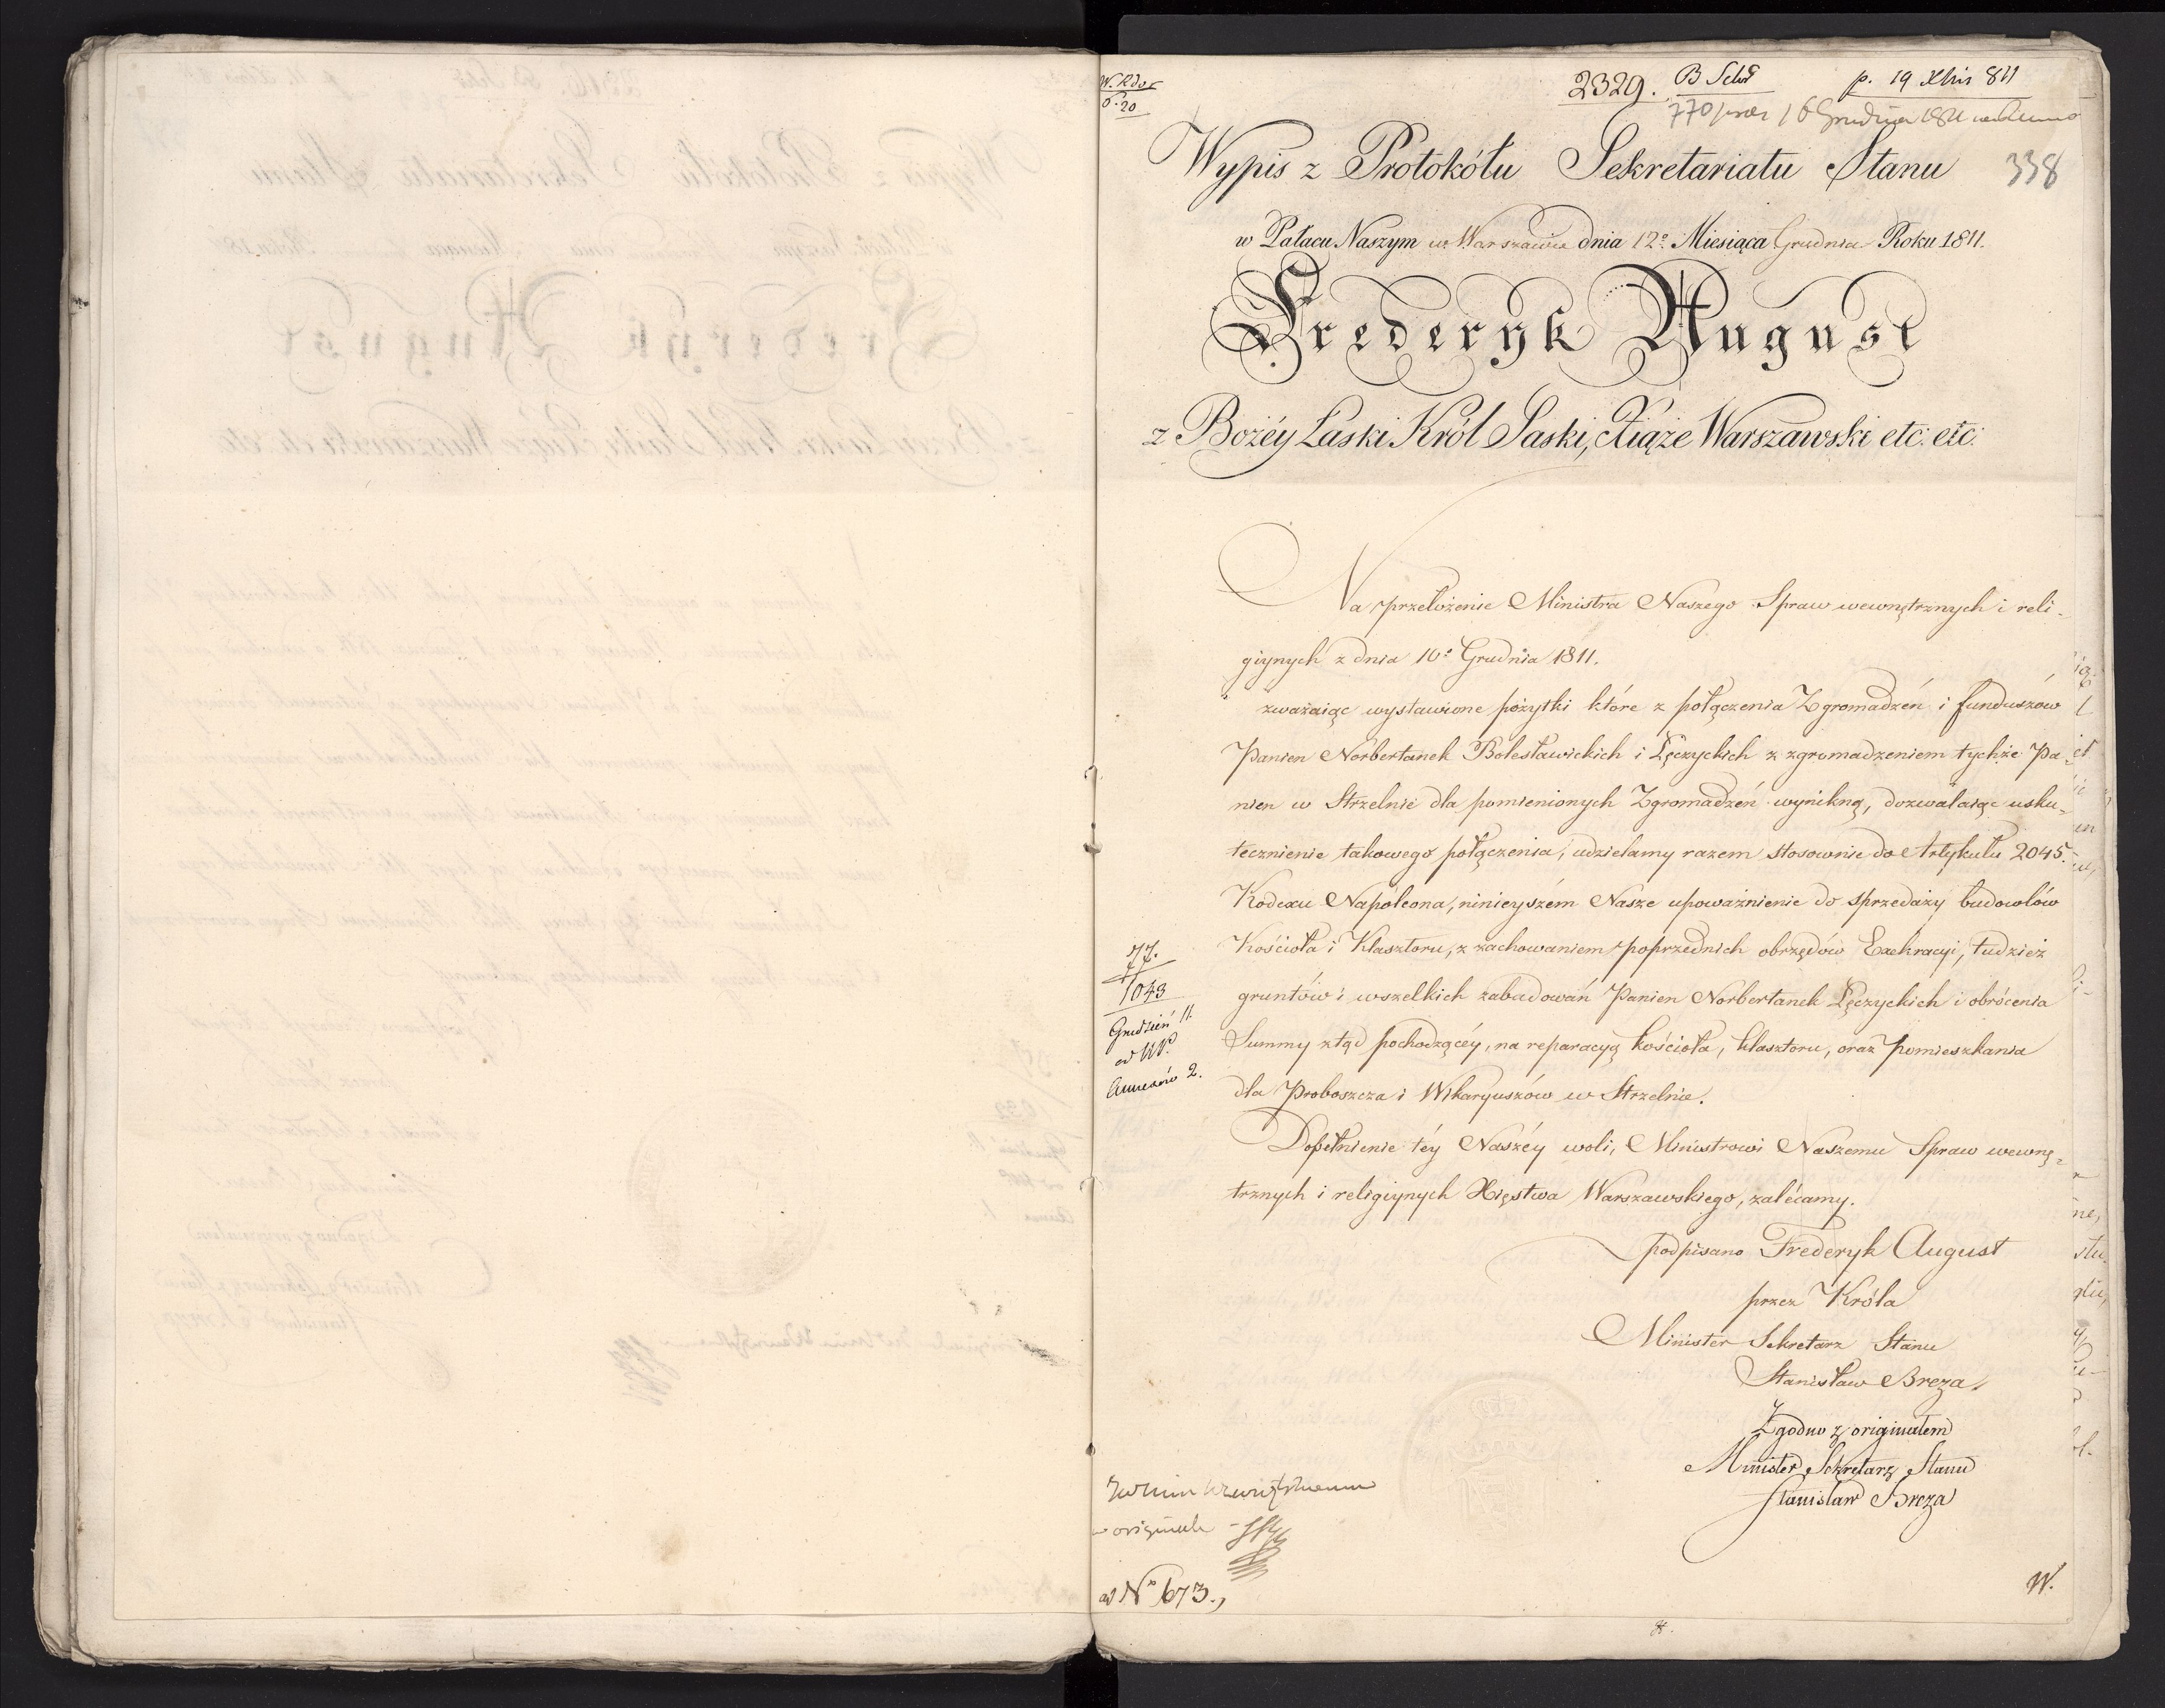 2329. p. 19 Xbris 811
16 Grudnia 1811
Wypis z Protokółu Sekretariatu Stanu 338
w Pałacu Naszym w Warszawie dnia 12º Miesiąca Grudnia Roku 1811.
Frederyk August
z Bożéy Łaski Król Saski, Xiąże Warszawski etc: etc:
Na przełożenie Ministra Naszego Spraw wewnętrznych i reli-
giynych z dnia 10º Grudnia 1811.
zważaiąc wystawione pożytki które z połączenia Zgromadzeń i funduszów
Panien Norbertanek Bolesławickich i Łęczyckich z zgromadzeniem tychże Pa-
nien w Strzelnie dla pomienionych Zgromadzeń wynikną, dozwalaiąc usku-
tecznienie takowego połączenia, udzielamy razem stosownie do Artykułu 2045.
Kodexu Napoleona, ninieyszém Nasze upoważnienie do sprzedaży budowlów
Kościoła i Klasztoru, z zachowaniem poprzednich obrzędów Exekracyi, tudzież
gruntów i wszelkich zabudowań Panien Norbertanek Łęczyckich i obrócenia
Summy ztąd pochodzącéy, na reparacyą kościoła, klasztoru, oraz pomieszkania
dla Proboszcza i Wikaryuszów w Strzelnie.
Dopełnienie téy Naszéy woli, Ministrowi Naszemu Spraw wewnę-
trznych i religiynych Xięstwa Warszawskiego, zalécamy.
podpisano Frederyk August
przez Króla
Minister Sekretarz Stanu
Stanisław Breza.
Zgodno z originałem
Minister Sekretarz Stanu
Stanisław Breza
1043
Grudzień 11.
Annexów 2.
w originale
ad Nº 673.
W.